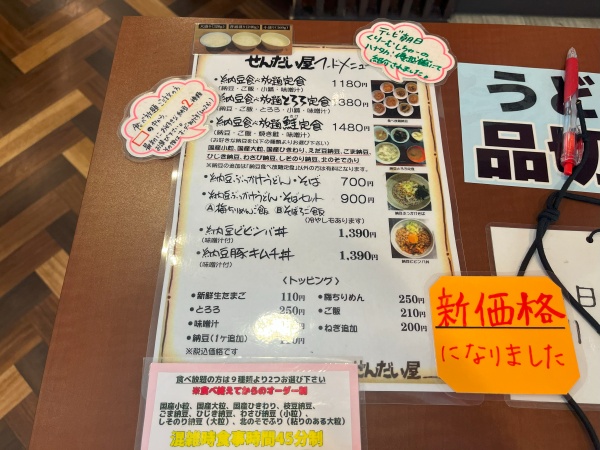 せんだい屋フードメニュー
テレビ朝日
・納豆食べ放題定食 1180円
(納豆・ご飯・小鉢・味噌汁)
・納豆食べ放題とろろ定食 1380円
(納豆・ご飯・とろろ・小鉢・味噌汁)
・納豆食べ放題鮭定食 1480円
(納豆・ご飯・焼き鮭・味噌汁)
(お好きな納豆を以下の種類よりお選び下さい)
国産小粒、国産大粒、国産ひきわり、えだ豆納豆、ごま納豆、
ひじき納豆、わさび納豆、しそのり納豆、北のぞみぶり
・納豆ぶっかけうどん・そば 700円
・納豆ぶっかけうどん・そばセット 900円
(冷やしもあります)
・納豆ビビンバ丼 1,390円
(味噌汁付)
・納豆豚キムチ丼 1,390円
(味噌汁付)
〈トッピング〉
・新鮮生たまご 110円
・とろろ 250円
・味噌汁
・納豆(1ヶ追加)
※税込価格です
・鶏ちりめん 250円
・ご飯 210円
・ねぎ追加 200円
せんだい屋
新価格
になりました
うど
品切
食べ放題の方は9種類より2つお選び下さい
※食べ終えてからのオーダー制
国産小粒、国産大粒、国産ひきわり、枝豆納豆、
ごま納豆、ひじき納豆、わさび納豆(小粒)、
しそのり納豆(大粒)、北のぞみぶり(粘りのある大粒)
混雑時食事時間45分制